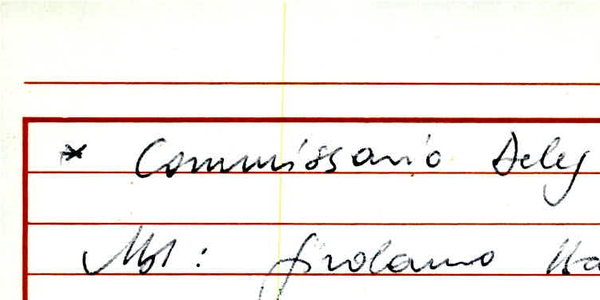 * Commissario Deleg
Msr: Girolamo